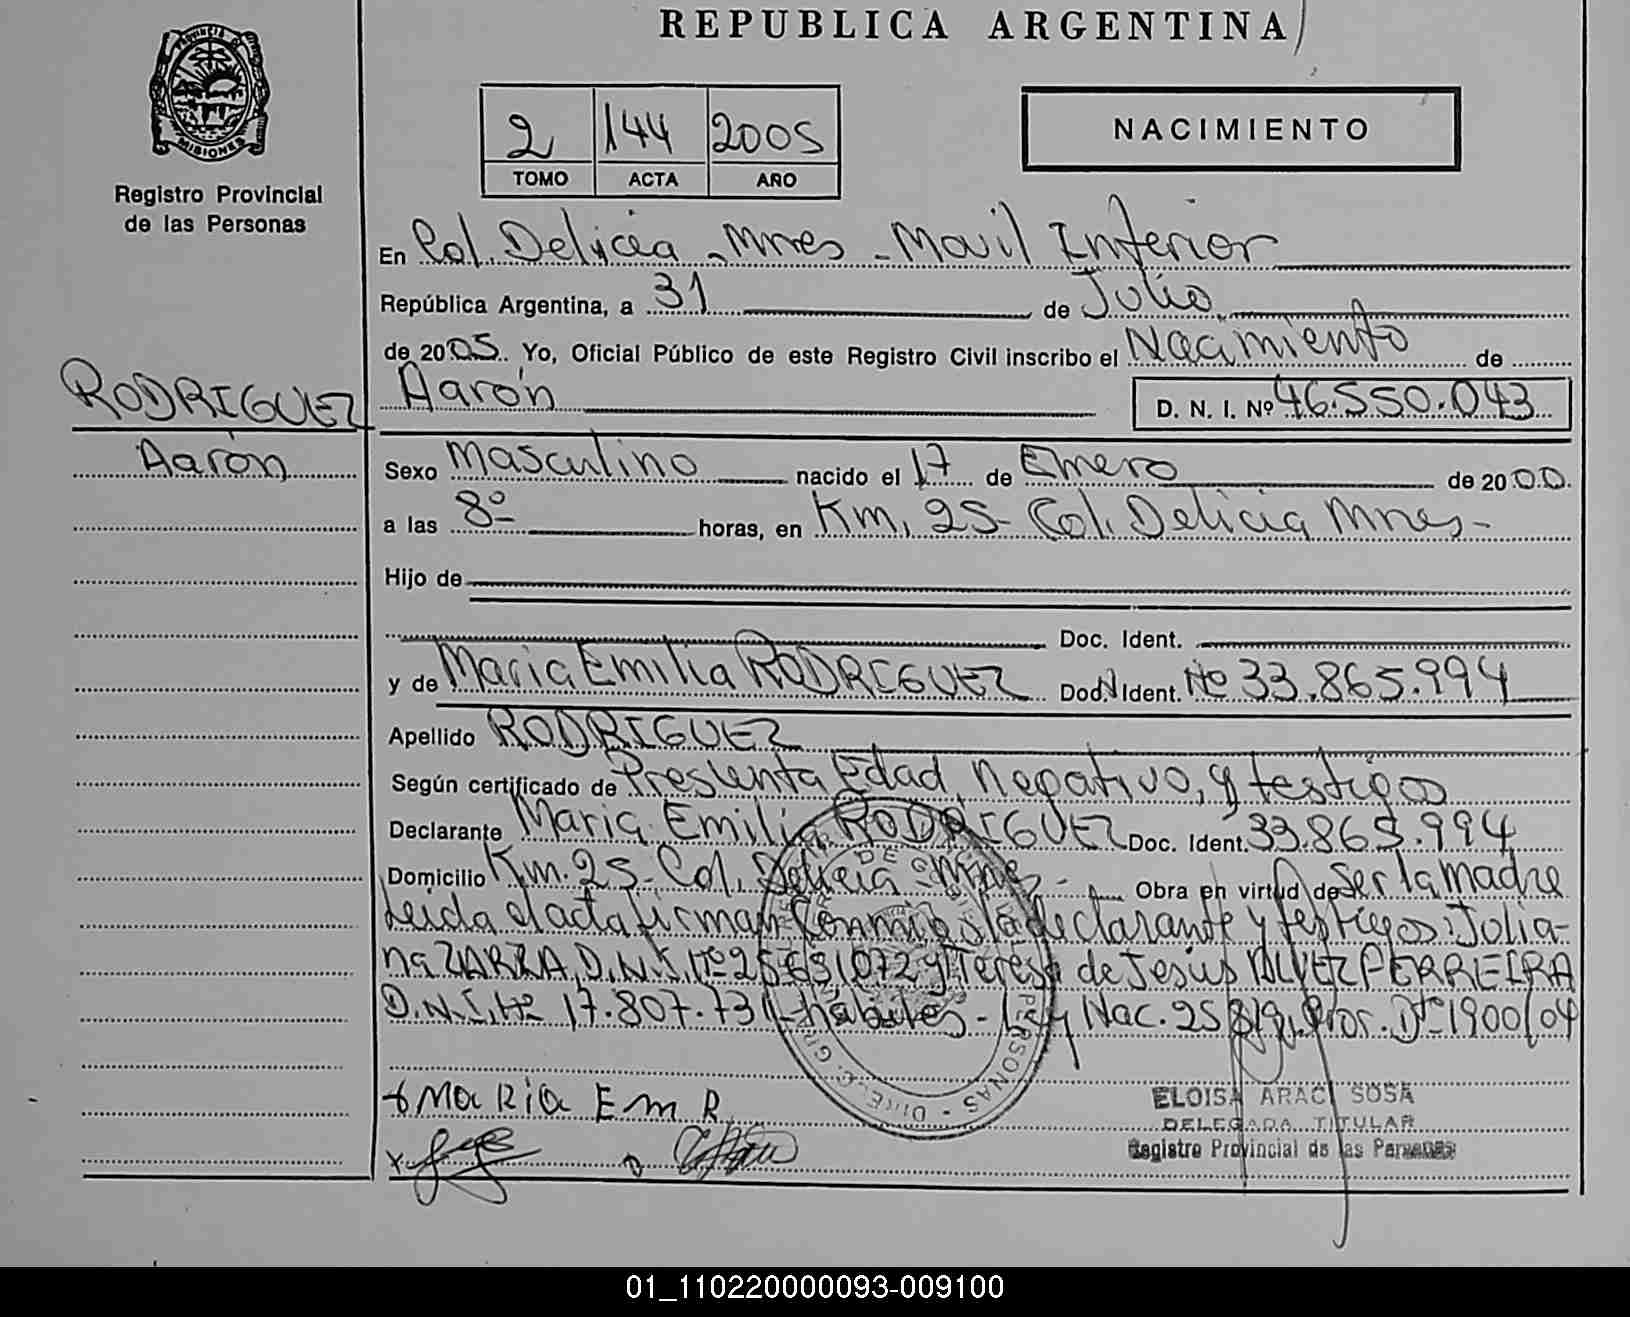 REPUBLICA ARGENTINA
PROVINCIA DE
MISIONES
Registro Provincial
de las Personas
2 144 2005
TOMO ACTA AÑO
NACIMIENTO
En Col. Delicia - Mnes - Movil Inferior
República Argentina, a 31 de Julio
de 2005. Yo, Oficial Público de este Registro Civil inscribo el Nacimiento de
RODRIGUEZ
Aarón
Aarón D. N. I. Nº 46.550.043
Sexo Masculino nacido el 17 de Enero de 2000.
a las 8º horas, en Km. 25- Col. Delicia Mnes-
Hijo de
Doc. Ident.
y de Maria Emilia RODRIGUEZ Doc. Ident. Nº 33.865.994
Apellido RODRIGUEZ
Según certificado de Presenta Edad, Negativo, y testigos
Declarante Maria Emilia RODRIGUEZ Doc. Ident. 33.865.994
Domicilio Km. 25- Col. Delicia - Mnes - Obra en virtud de Ser la madre
Leida el acta firman Conmigo la declarante y testigos: Julia-
na ZARZA, D.N.I. Nº 25631072 y Teresa de Jesus ALVEZ PERREIRA
D.N.I. Nº 17.807.731-habiles- Ley Nac. 25819, Pror. Dto 1900/04
x Maria Em R.
ELOISA ARACI SOSA
DELEGADA TITULAR
Registro Provincial de las Personas
01_110220000093-009100